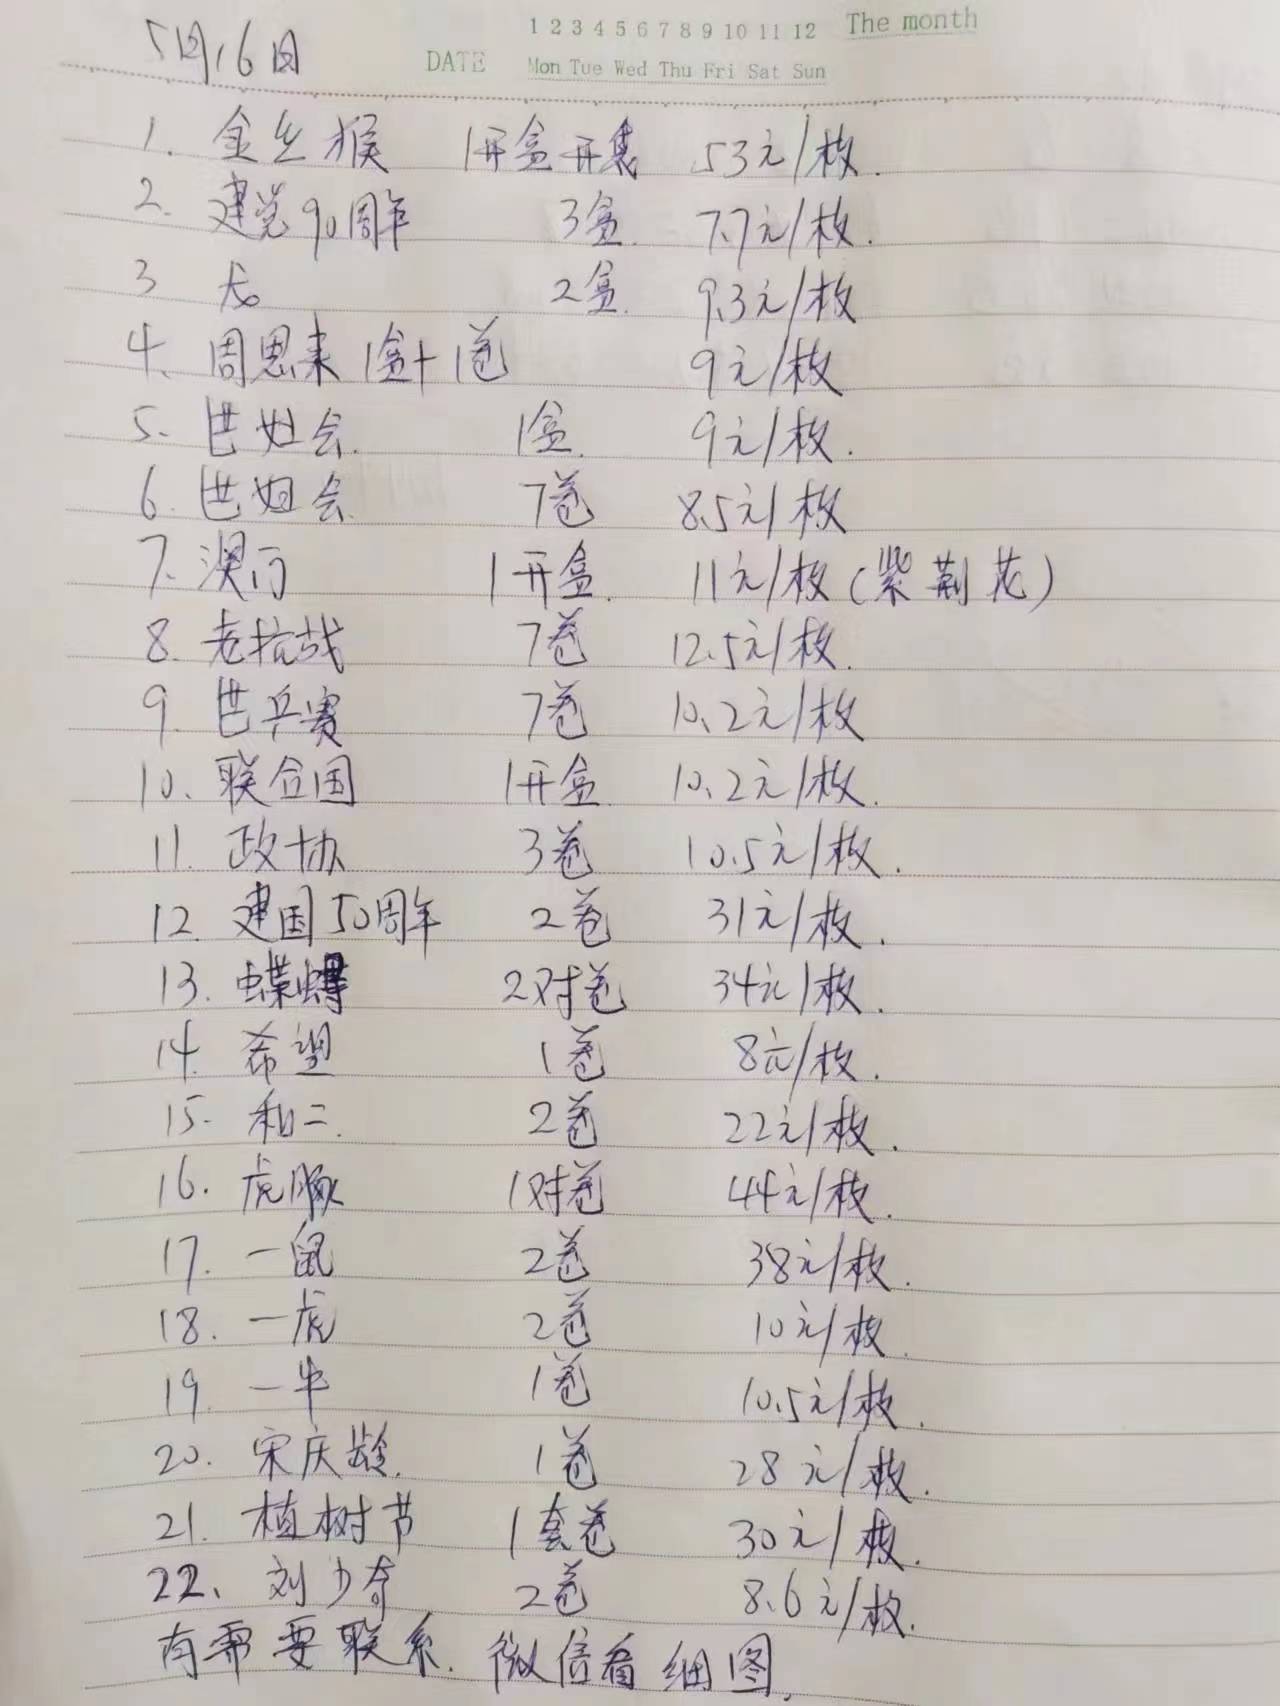 5月16日
1 2 3 4 5 6 7 8 9 10 11 12 The month
DATE Mon Tue Wed Thu Fri Sat Sun
1. 金生猴 1开盒 53元/枚.
2. 建党90周年 3盒. 7.7元/枚.
3 龙 2盒. 9.3元/枚
4. 周恩来 1盒+1卷 9元/枚
5. 世妇会. 1盒. 9元/枚.
6. 世妇会. 7卷 8.5元/枚
7. 澳门 1开盒. 11元/枚(紫荆花)
8. 老抗战 7卷 12.5元/枚.
9. 世乒赛 7卷 10.2元/枚
10. 联合国 1开盒. 10.2元/枚.
11. 政协 3卷 10.5元/枚.
12. 建国50周年 2卷 31元/枚.
13. 2对卷 34元/枚.
14. 希望 1卷 8元/枚.
15. 和二. 2卷 22元/枚.
16. 虎豚 1对卷 44元/枚.
17. 一鼠 2卷 38元/枚.
18. 一虎 2卷 10元/枚.
19. 一牛 1卷 10.5元/枚.
20. 宋庆龄. 1卷 28元/枚.
21. 植树节 1套卷 30元/枚.
22、刘少奇 2卷 8.6元/枚.
有需要联系. 微信看细图.